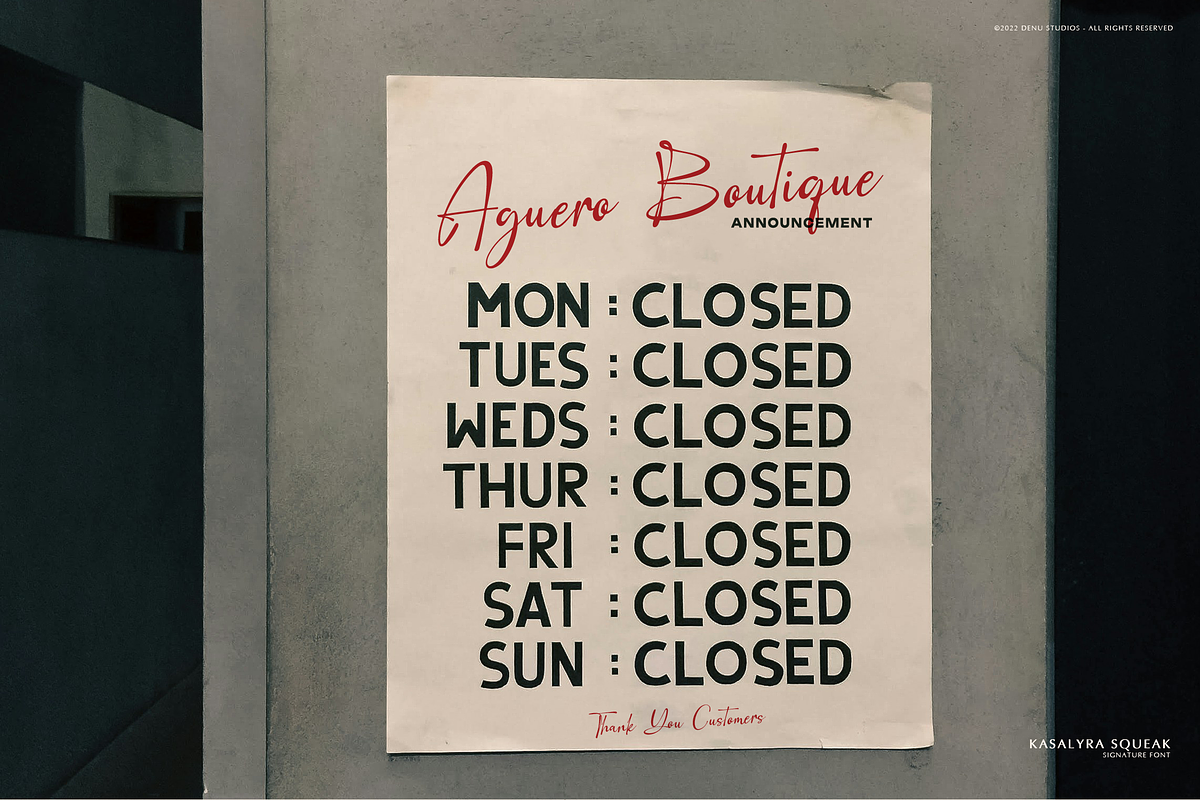 ©2022 DENU STUDIOS - ALL RIGHTS RESERVED
Aguero Boutique
ANNOUNCEMENT
MON : CLOSED
TUES : CLOSED
WEDS : CLOSED
THUR : CLOSED
FRI : CLOSED
SAT : CLOSED
SUN : CLOSED
Thank You Customers
KASALYRA SQUEAK
SIGNATURE FONT